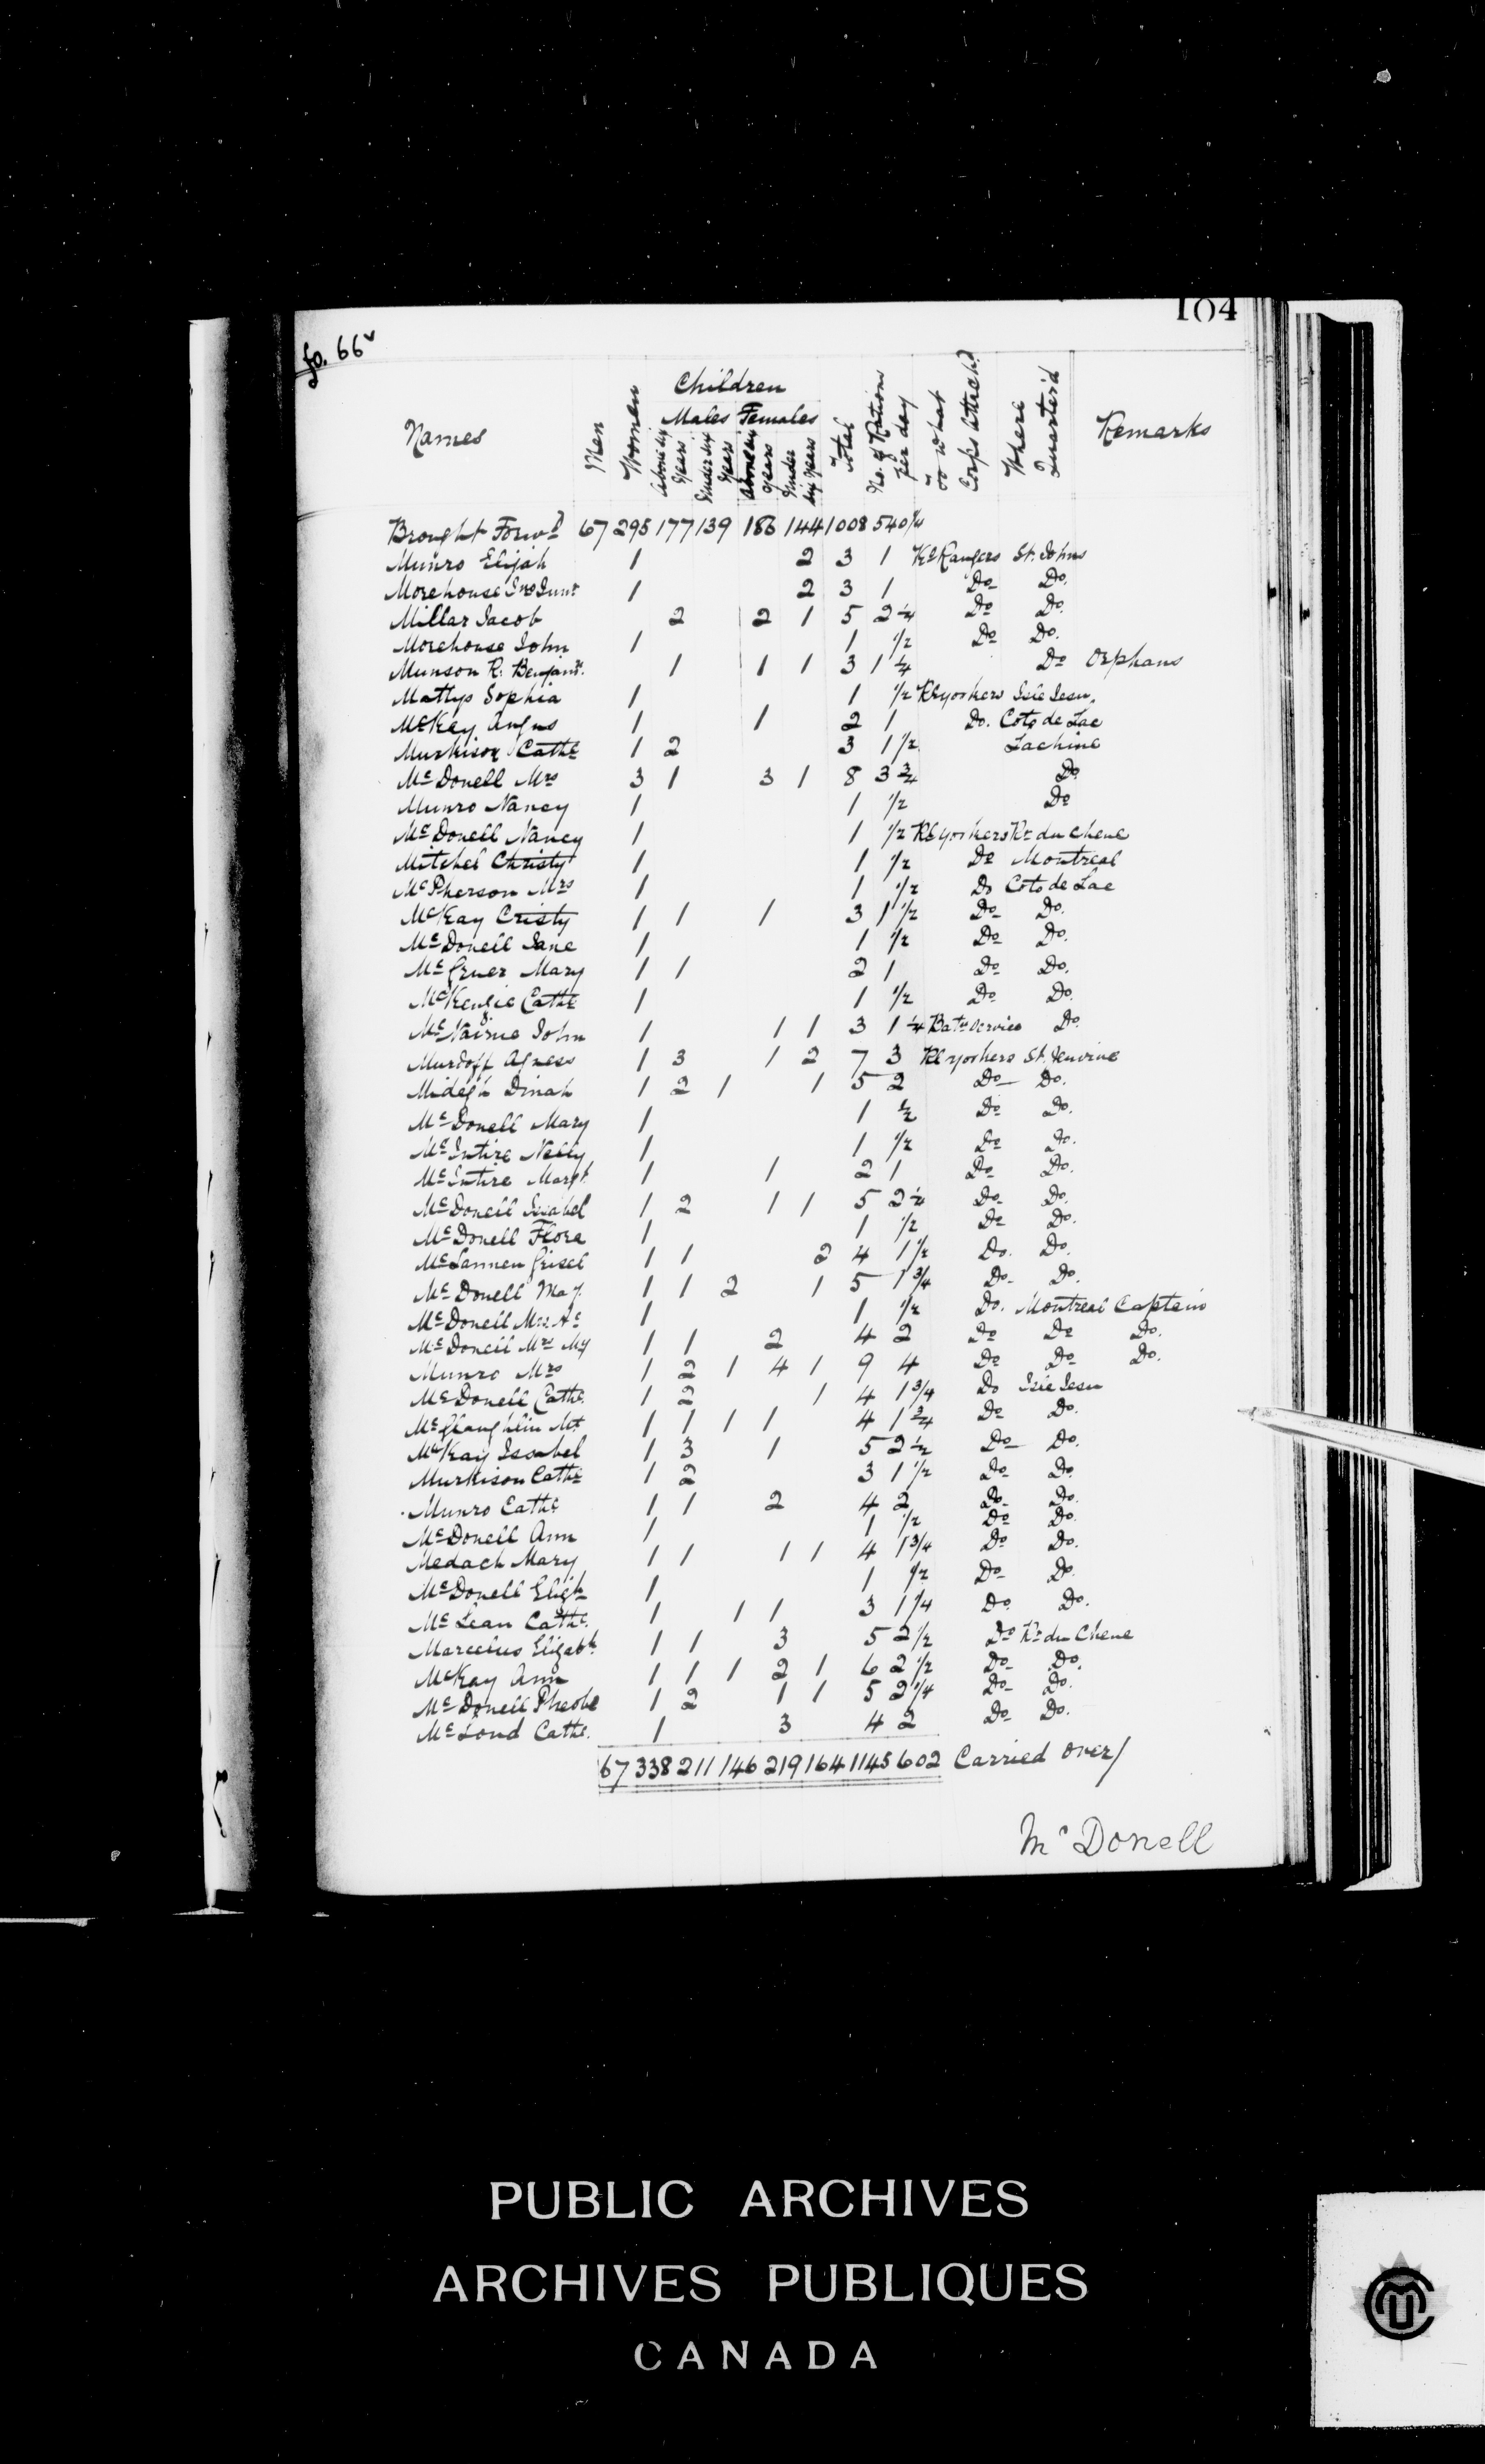 104
fo. 66v
Children
Males Females
Names Men Women Above six Years Under six Years Above six Years Under six Years Total No. of Rations per day To what Corps Attachd Where Quarter'd Remarks
Brought Forwd 67 295 177 139 186 144 1008 540 1/4
Munro Elijah 1 2 3 1 Ks Rangers St. Johns
Morehouse Jno Junr 1 2 3 1 Do Do.
Millar Jacob 2 2 1 5 2 1/4 Do Do.
Morehouse John 1 1 1/2 Do Do.
Munson R. Benjamn. 1 1 1 3 1 1/4 Do Orphans
Mattys Sophia 1 1 1/2 Rl yorkers Isle Jesu.
McKay Angus 1 1 2 1 Do. Coto de Lac
Murkison Cathe 1 2 3 1 1/2 Lachine
Mc Donell Mrs 3 1 3 1 8 3 3/4 Do.
Munro Nancy 1 1 1/2 Do
Mc Donell Nancy 1 1 1/2 Rl yorkers Rr du Chene
Mitchel Christy 1 1 1/2 Do Montreal
Mc Pherson Mrs 1 1 1/2 Do Coto de Lac
McKay Cristy 1 1 1 3 1 1/2 Do Do.
Mc Donell Jane 1 1 1/2 Do Do.
Mc Gruer Mary 1 1 2 1 Do Do.
McKenzie Cathe 1 1 1/2 Do Do.
Mc Nairne John 1 1 1 3 1 1/4 Batx Service Do.
Murdoff Agness 1 3 1 2 7 3 Rl yorkers St.
Midegh Dinah 1 2 1 1 5 2 Do Do.
Mc Donell Mary 1 1 1/2 Do Do.
Mc Intire Nelly 1 1 1/2 Do Do.
Mc Intire Margt. 1 1 2 1 Do Do.
Mc Donell Isabel 1 2 1 1 5 2 1/4 Do Do.
Mc Donell Flora 1 1 1/2 Do Do.
McLannen Grisel 1 1 2 4 1 1/2 Do. Do.
Mc Donell May. 1 1 2 1 5 1 3/4 Do Do.
Mc Donell Mrs Ac 1 1 1/2 Do. Montreal Captain
Mc Donell Mrs My 1 1 2 4 2 Do Do Do.
Munro Mrs 1 2 1 4 1 9 4 Do Do Do.
Mc Donell Cathe. 1 2 1 4 1 3/4 Do Isle Jesu
Mc Glaughlin Mt 1 1 1 1 4 1 3/4 Do Do.
McKay Isabel 1 3 1 5 2 1/2 Do Do.
Murkison Cathe 1 2 3 1 1/2 Do Do.
Munro Cathe 1 1 2 4 2 Do Do.
Mc Donell Ann 1 1 1/2 Do Do.
Medach Mary 1 1 1 1 4 1 3/4 Do Do.
Mc Donell Elizh 1 1 1/2 Do Do.
Mc Lean Cathe. 1 1 1 3 1 1/4 Do Do.
Marcelus Elizabh. 1 1 3 5 2 1/2 Do Rr du Chene
McKay Ann 1 1 1 2 1 6 2 1/2 Do Do.
Mc Donell Pheobe 1 2 1 1 5 2 1/4 Do Do.
Mc Loud Cathe. 1 3 4 2 Do Do.
67 338 211 146 219 164 1145 602 Carried over/
Mc Donell
PUBLIC ARCHIVES
ARCHIVES PUBLIQUES
CANADA